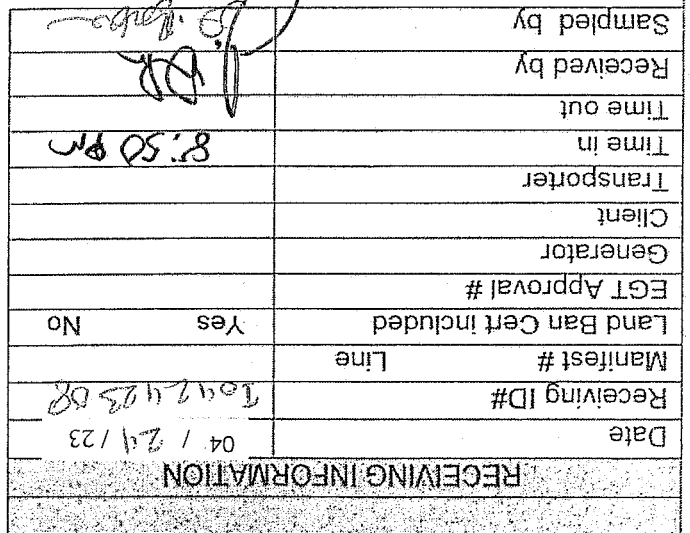 RECEIVING INFORMATION
Date 04 / 24 / 23
Receiving ID# I04242308
Manifest # Line
Land Ban Cert included Yes No
EGT Approval #
Generator
Client
Transporter
Time in 8:50 PM
Time out
Received by DR
Sampled by